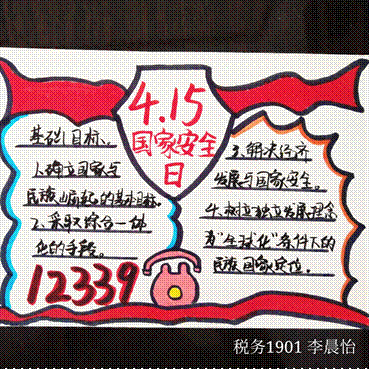 4.15
国家安全
日
基础目标。
1.确立国家与
民族崛起的基本目标。
2.采取综合一体
化的手段。
12339
3.解决经济
发展与国家安全。
4.树立独立发展理念
为"全球化"条件下的
民族国家定位。
税务1901 李晨怡